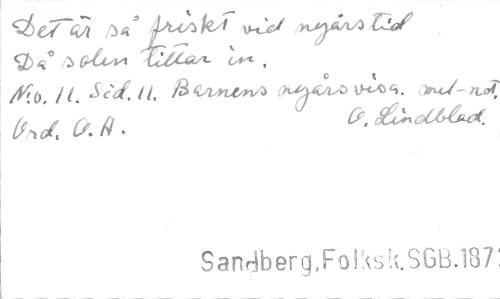 Det är så friskt vid nyårstid
Då solen tittar in.
N:o. 11. Sid. 11. Barnens nyårsvisa. mel-not.
Ord. O.A. O. Lindblad.
Sandberg,Folksk.SGB.187